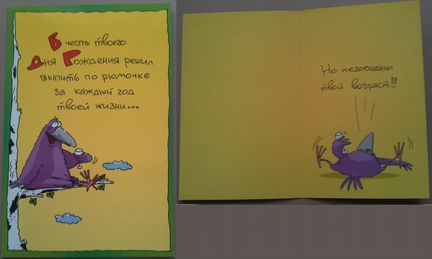 В честь твоего
Дня Рождения решил
выпить по рюмочке
за каждый год
твоей жизни...
Но недооценил
твой возраст!!!